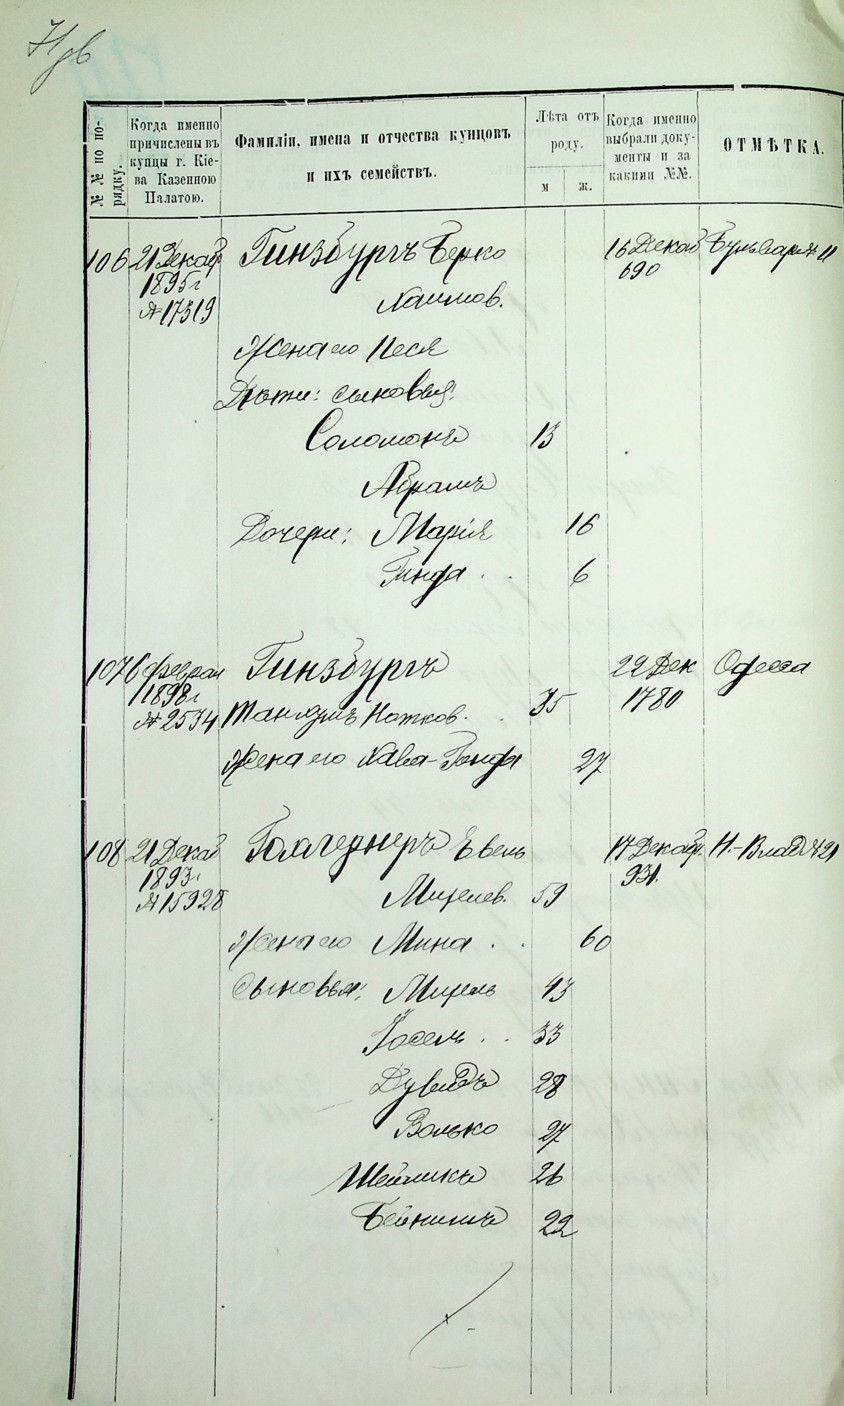 №№ по по-
рядку.
Когда именно
причислены въ
купцы г. Кіе-
ва Казенною
Палатою.
Фамиліи, имена и отчества купцовъ
и ихъ семействъ.
Лѣта отъ
роду.
м
ж.
Когда именно
выбрали доку-
менты и за
какими №№.
ОТМѢТКА.
106 21 Декаб Гинзбургъ Берко 16 Декаб
1895 г 690
№ 17319 Хаимов.
Жена его Песя
Дѣти: сыновья:
Соломонъ 13
Абрамъ
Дочери: Марія 16
Гинда 6
107 6 Феврал Гинзбургъ 22 Дек Одесса
1898 г 1780
№ 2534 Танхумъ Нотков. 35
Жена его Хава-Гинда 27
108 21 Декаб Евель 17 Декабр. Н.-Влад № 21
1893 г 931.
№ 15928 Михелев. 59
Жена его Мина 60
Сыновья: Михель 43
Іосель 33
Дувидъ 28
Волько 27
26
Бейнишъ 22